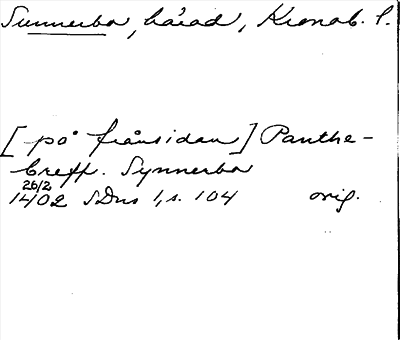 Sunnerbo, härad, Kronob. l.
[på frånsidan] Panthe-
breff. Synnerbo
26/2
1402 SDns 1, s. 104 orig.